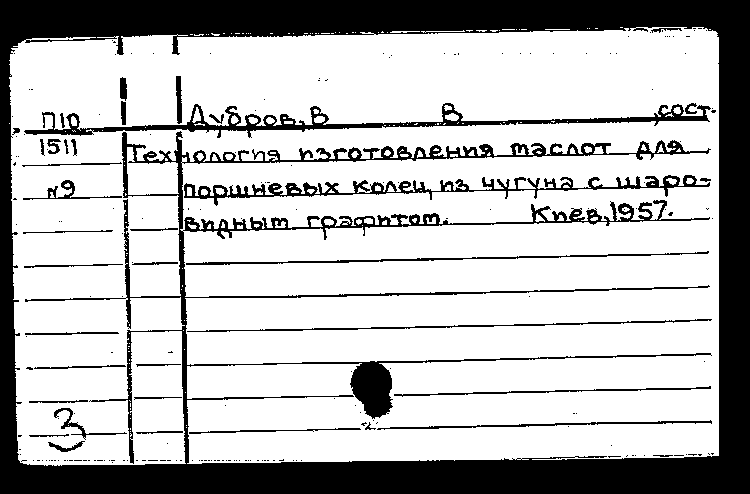 П10 Дубров, В В ,сост.
1511 Технология изготовления маслот для
№9 поршневых колец, из чугуна с шаро-
видным графитом. Киев, 1957.
3